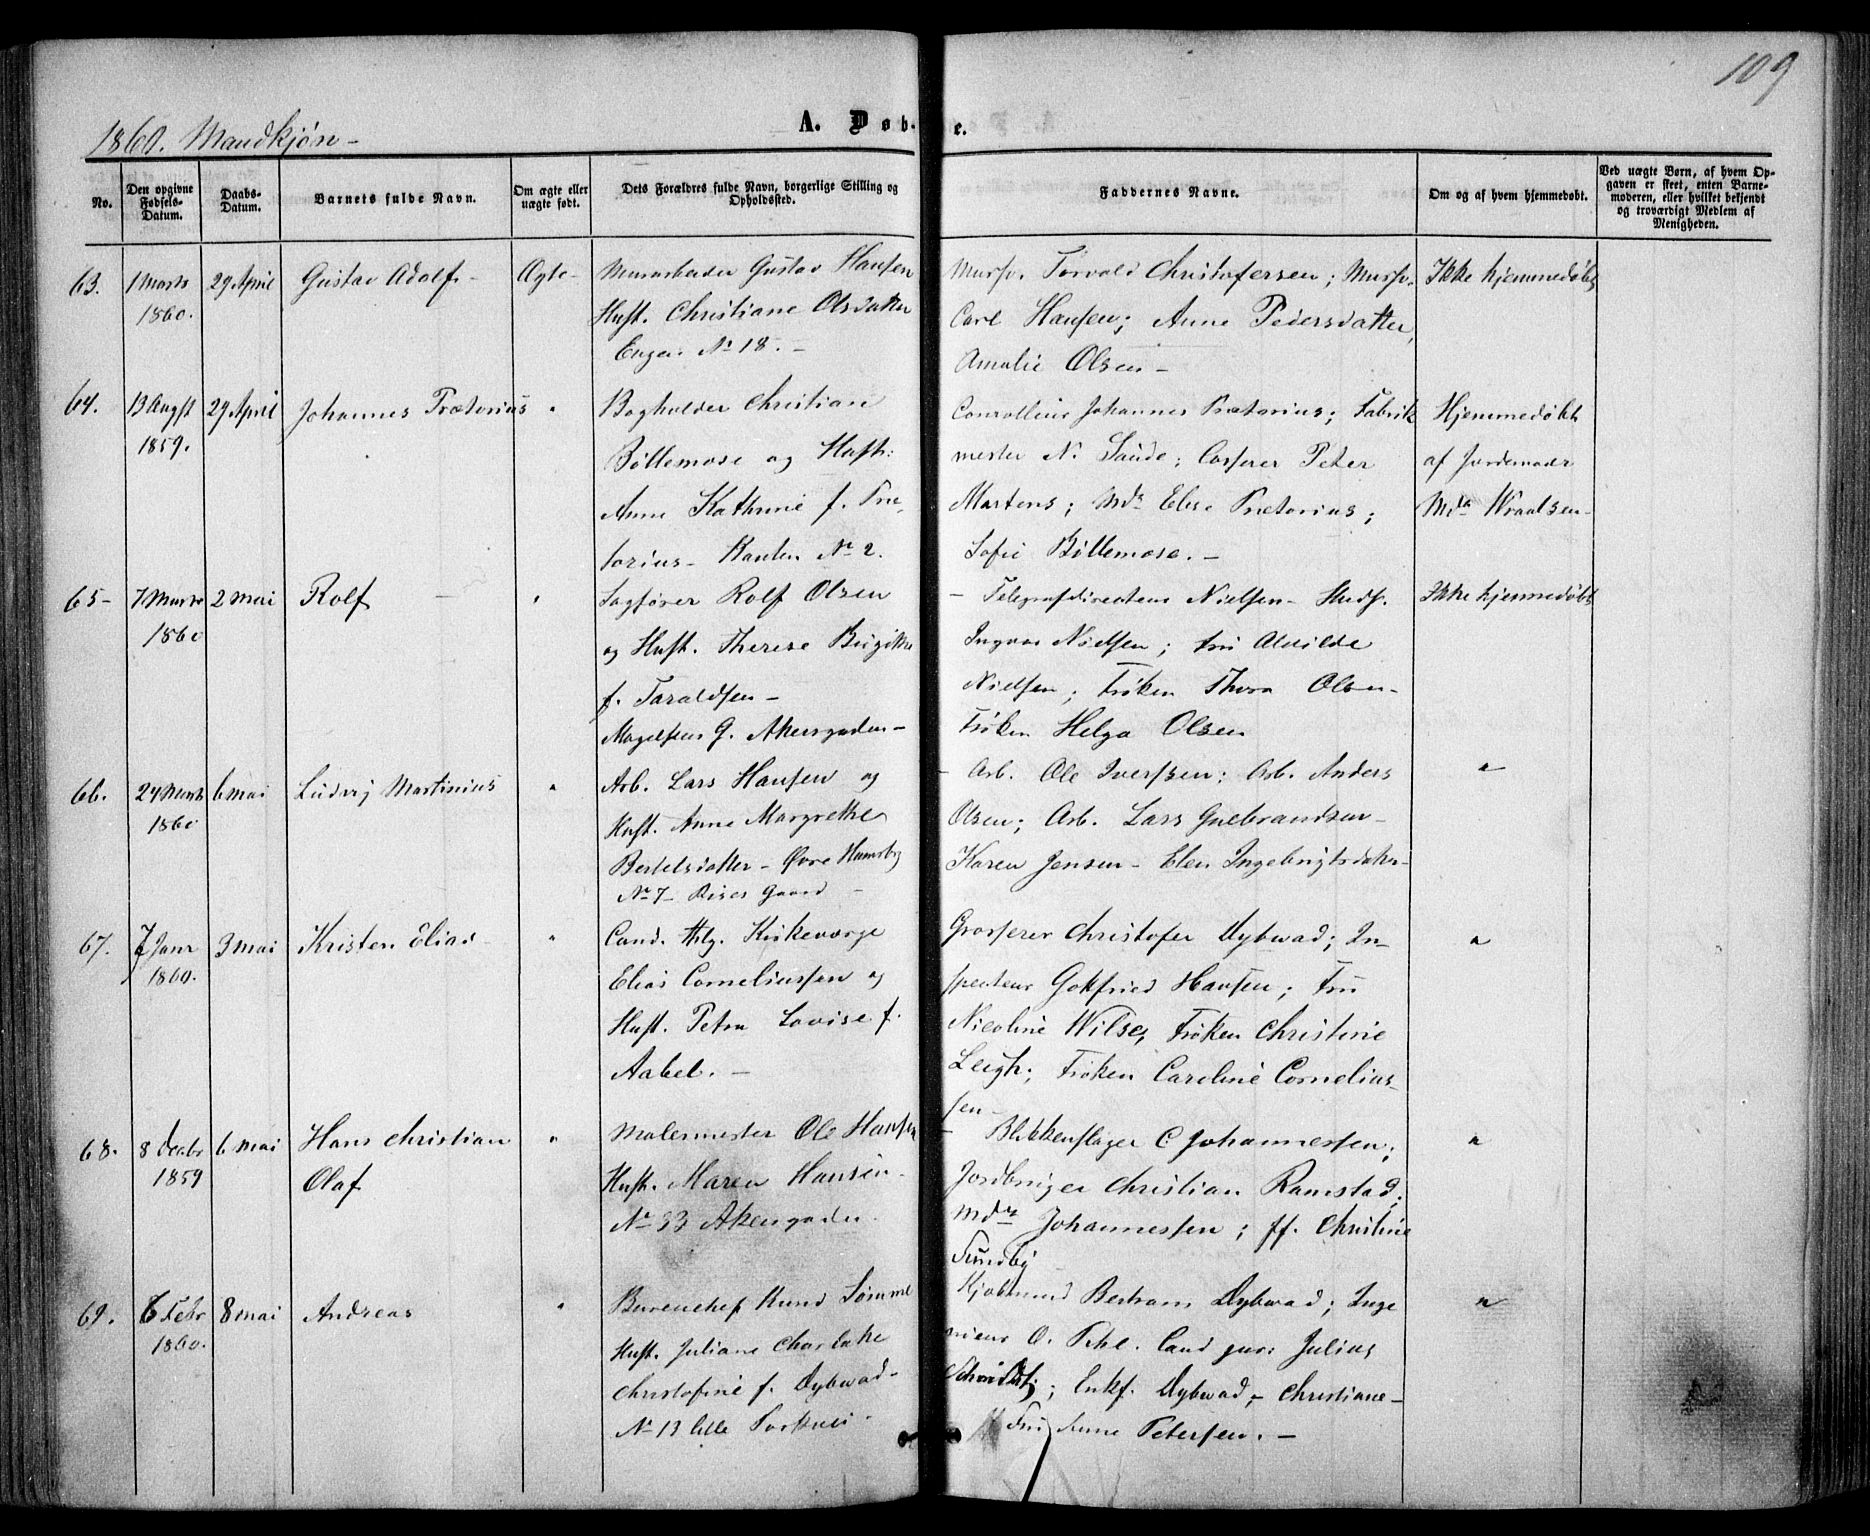 109
1860. Mandkjøn-
A. Døbte.
No.
Den opgivne Fødsels-Datum.
Daabs-Datum.
Barnets fulde Navn.
Om ægte eller uægte født.
Dets Forældres fulde Navn, borgerlige Stilling og Opholdssted.
Faddernes Navne.
Om og af hvem hjemmedøbt.
Ved uægte Børn, af hvem Op-
gaven er skeet, enten Barne-
moderen, eller hvilket bekjendt
og troværdigt Medlem af
Menigheden.
63. 1 Marts 1860. 29 April Gustav Adolf- Ægte-
Murarbeider Gustav Hansen
Hust. Christiane Olsdatter
Enger. No 18. -
Mursv. Torvald Christofersen; Mursv.
Carl Hansen; Anne Pedersdatter,
Amalie Olsen-
Ikke hjemmedøbt
64. 13 Augst 1859. 29 April Johannes Prætorius "
Bogholder Christian
Böllemose og Hustr:
Anne Kathrine f. Præ-
torius- No 2.
Johannes Prætorius; Fabrik
mester N. Saude; Peter
Martens; Md. Elise Prætorius;
Sofie Böllemose. -
Hjemmedøbt
af Jordemoder
Mda Wraalsen-
65- 7 Marts 1860 2 Mai Rolf - "
Sagfører Rolf Olsen
og Hust. Therese Birgitte
f. Taraldsen-
Magelsens G. Akersgaden-
- Telegrafdirecteur Nielsen- Studs.
Ingvar Nielsen; Fru Alvilde
Nielsen; Frøken Thora Olsen-
Frøken Helga Olsen
Ikke hjemmedøbt
66. 24 Marts 1860 6 Mai Ludvig Martinius "
Arb. Lars Hansen og
Hust. Anne Margrethe
Bertelsdatter- Øvre Hamsby
No 7- Riises Gaard -
- Arb. Ole Iversen; Arb. Anders
Olsen; Arb. Lars Gulbrandsen-
Karen Jensen- Elen Ingebrigtsdatter-
"
67. 7 Janr 1860. 3 Mai Kristen Elias- "
Cand. Thlg. Kirkeværge
Elias Corneliussen og
Hust. Petra Lovise f.
Aabel. -
Grosserer Christofer Dybwad; In-
specteur Gotfried Hansen; Fru
Nicoline Wilse, Frøken Christine
Leigh; Frøken Caroline Cornelius-
sen-
"
68. 8 Decbr 1859 6 Mai Hans Christian "
Olaf
Malermester Ole Hansen
Hust. Maren Hansen-
No 33 Akersgaden.
- Blikkenslager C Johannessen;
Jordbruger Christian Ramstad;
Mdm Johannessen; ff. Christine
Sundby
"
69. 6 Febr 1860. 8 Mai Andreas "
Bureauchef Knud Sømme
Hust. Juliane Charlotte
Christofine f. Dybwad-
No 13 lille
Kjøbmand Bertram Dybwad; Inge
nieur O. Pihl. Cand jur: Julius
Schmidt; Enkf. Dybwad,- Christiane-
Fru Anne Petersen. -
"